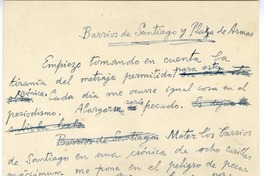 Barrios de Santiago y Plaza de Armas
Empiezo tomando en cuenta la
tiranía del metraje permitido para esta
crónica. Cada día me ocurre igual cosa en el
periodismo. Alargarse será pecado.
Barrios de Santiago Meter los barrios
de Santiago en una crónica de ocho carillas
máximum me pone en el peligro de pecar